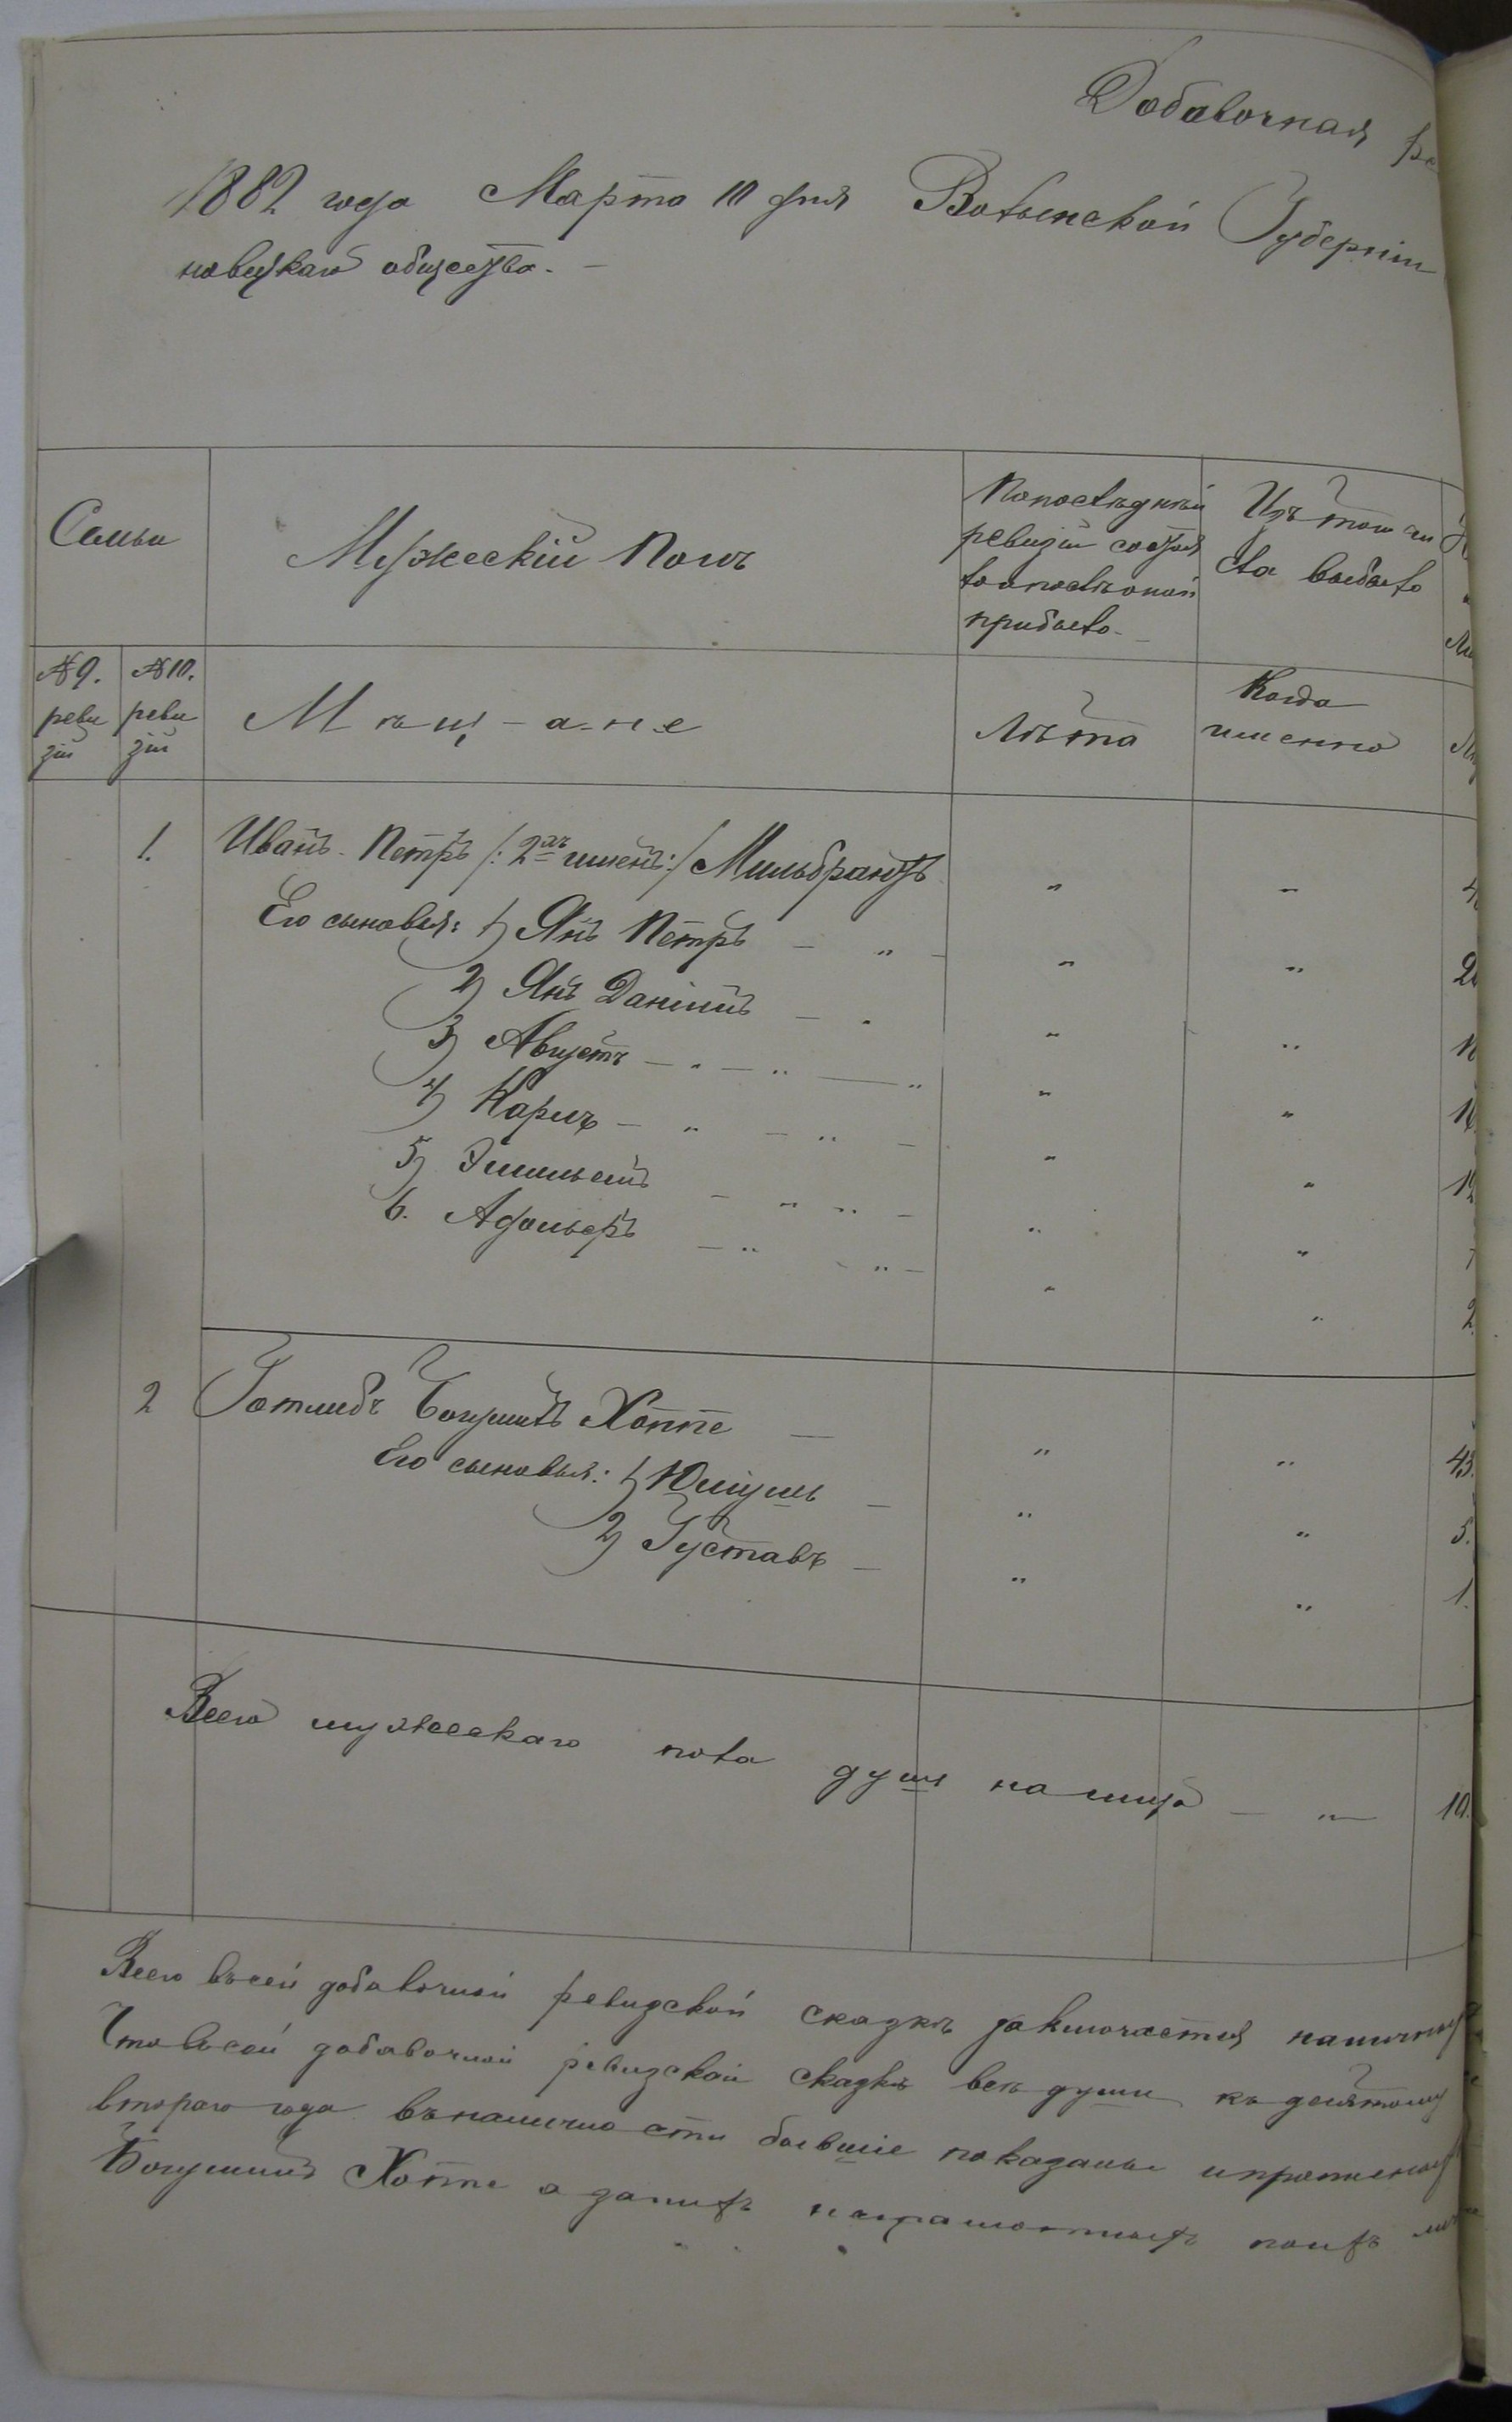 Добавочная ре
1882 года Марта 10 дня Волынской Губерніи
новецкаго общества. –
Семьи
Мужескій полъ
По последней
ревизіи состоя
ло и после оной
прибыло. –
Изъ того чи
сла выбыло
№ 9.
реви
зіи
№ 10.
реви
зіи
М ѣ щ - а - н - е
Лѣта
Когда
именно
1. Иванъ-Петръ /: 2хъ именъ :/ Мильбрантъ " " 4
Его сыновья: 1) Янъ Петръ – " – " " 2
2) Янъ Даніилъ – " " " 1
3) Августъ – " – " — " " " 1
4) Карлъ – " – " – " " 1
5) Эмильянъ – " " – " " 7
6. Адольфъ – " " – " " 2
2 Готлибъ Богумилъ Хоппе — " " 43.
Его сыновья: 1) Юліушъ – " " 5.
2) Густавъ – " " 1.
Всего мужескаго пола душъ на лицо – " – 10.
Всего въ сей добавочной ревизской сказкѣ заключается наличных
Что въ сей добавочной ревизской сказкѣ всѣ души къ десятому
втораго года въ наличности бывшіе показаны и пропиленых
Богумилъ Хоппе а за нихъ неграмотныхъ